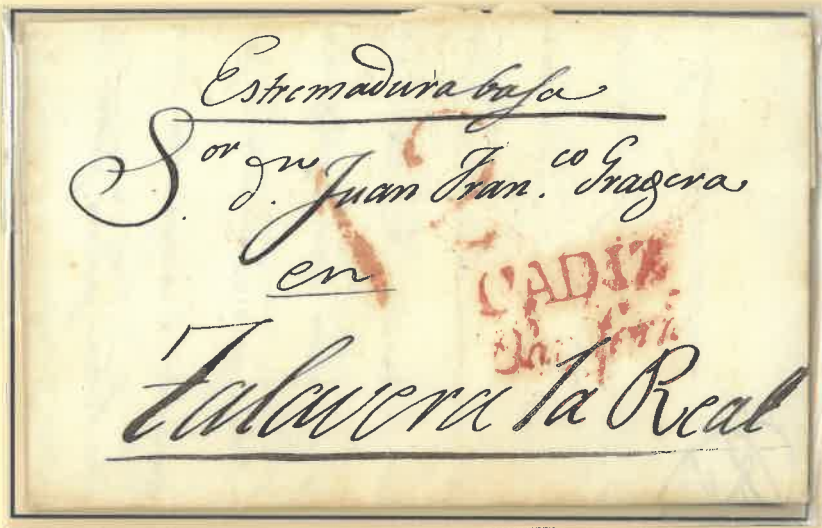 Estremadura baja
S.or d.n Juan Fran.co Gragera
en
CADIZ
Talavera la Real